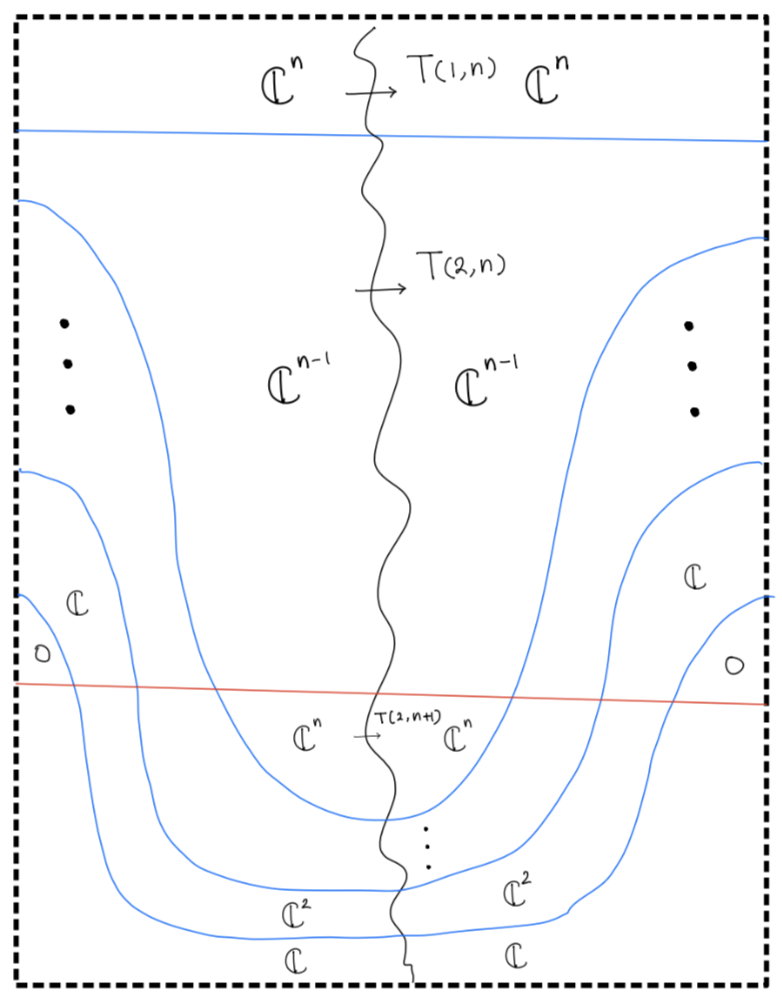 ℂⁿ T(1,n) ℂⁿ
T(2,n)
ℂⁿ⁻¹ ℂⁿ⁻¹
ℂ ℂ
0 0
ℂⁿ T(2,n+1) ℂⁿ
ℂ² ℂ²
ℂ ℂ